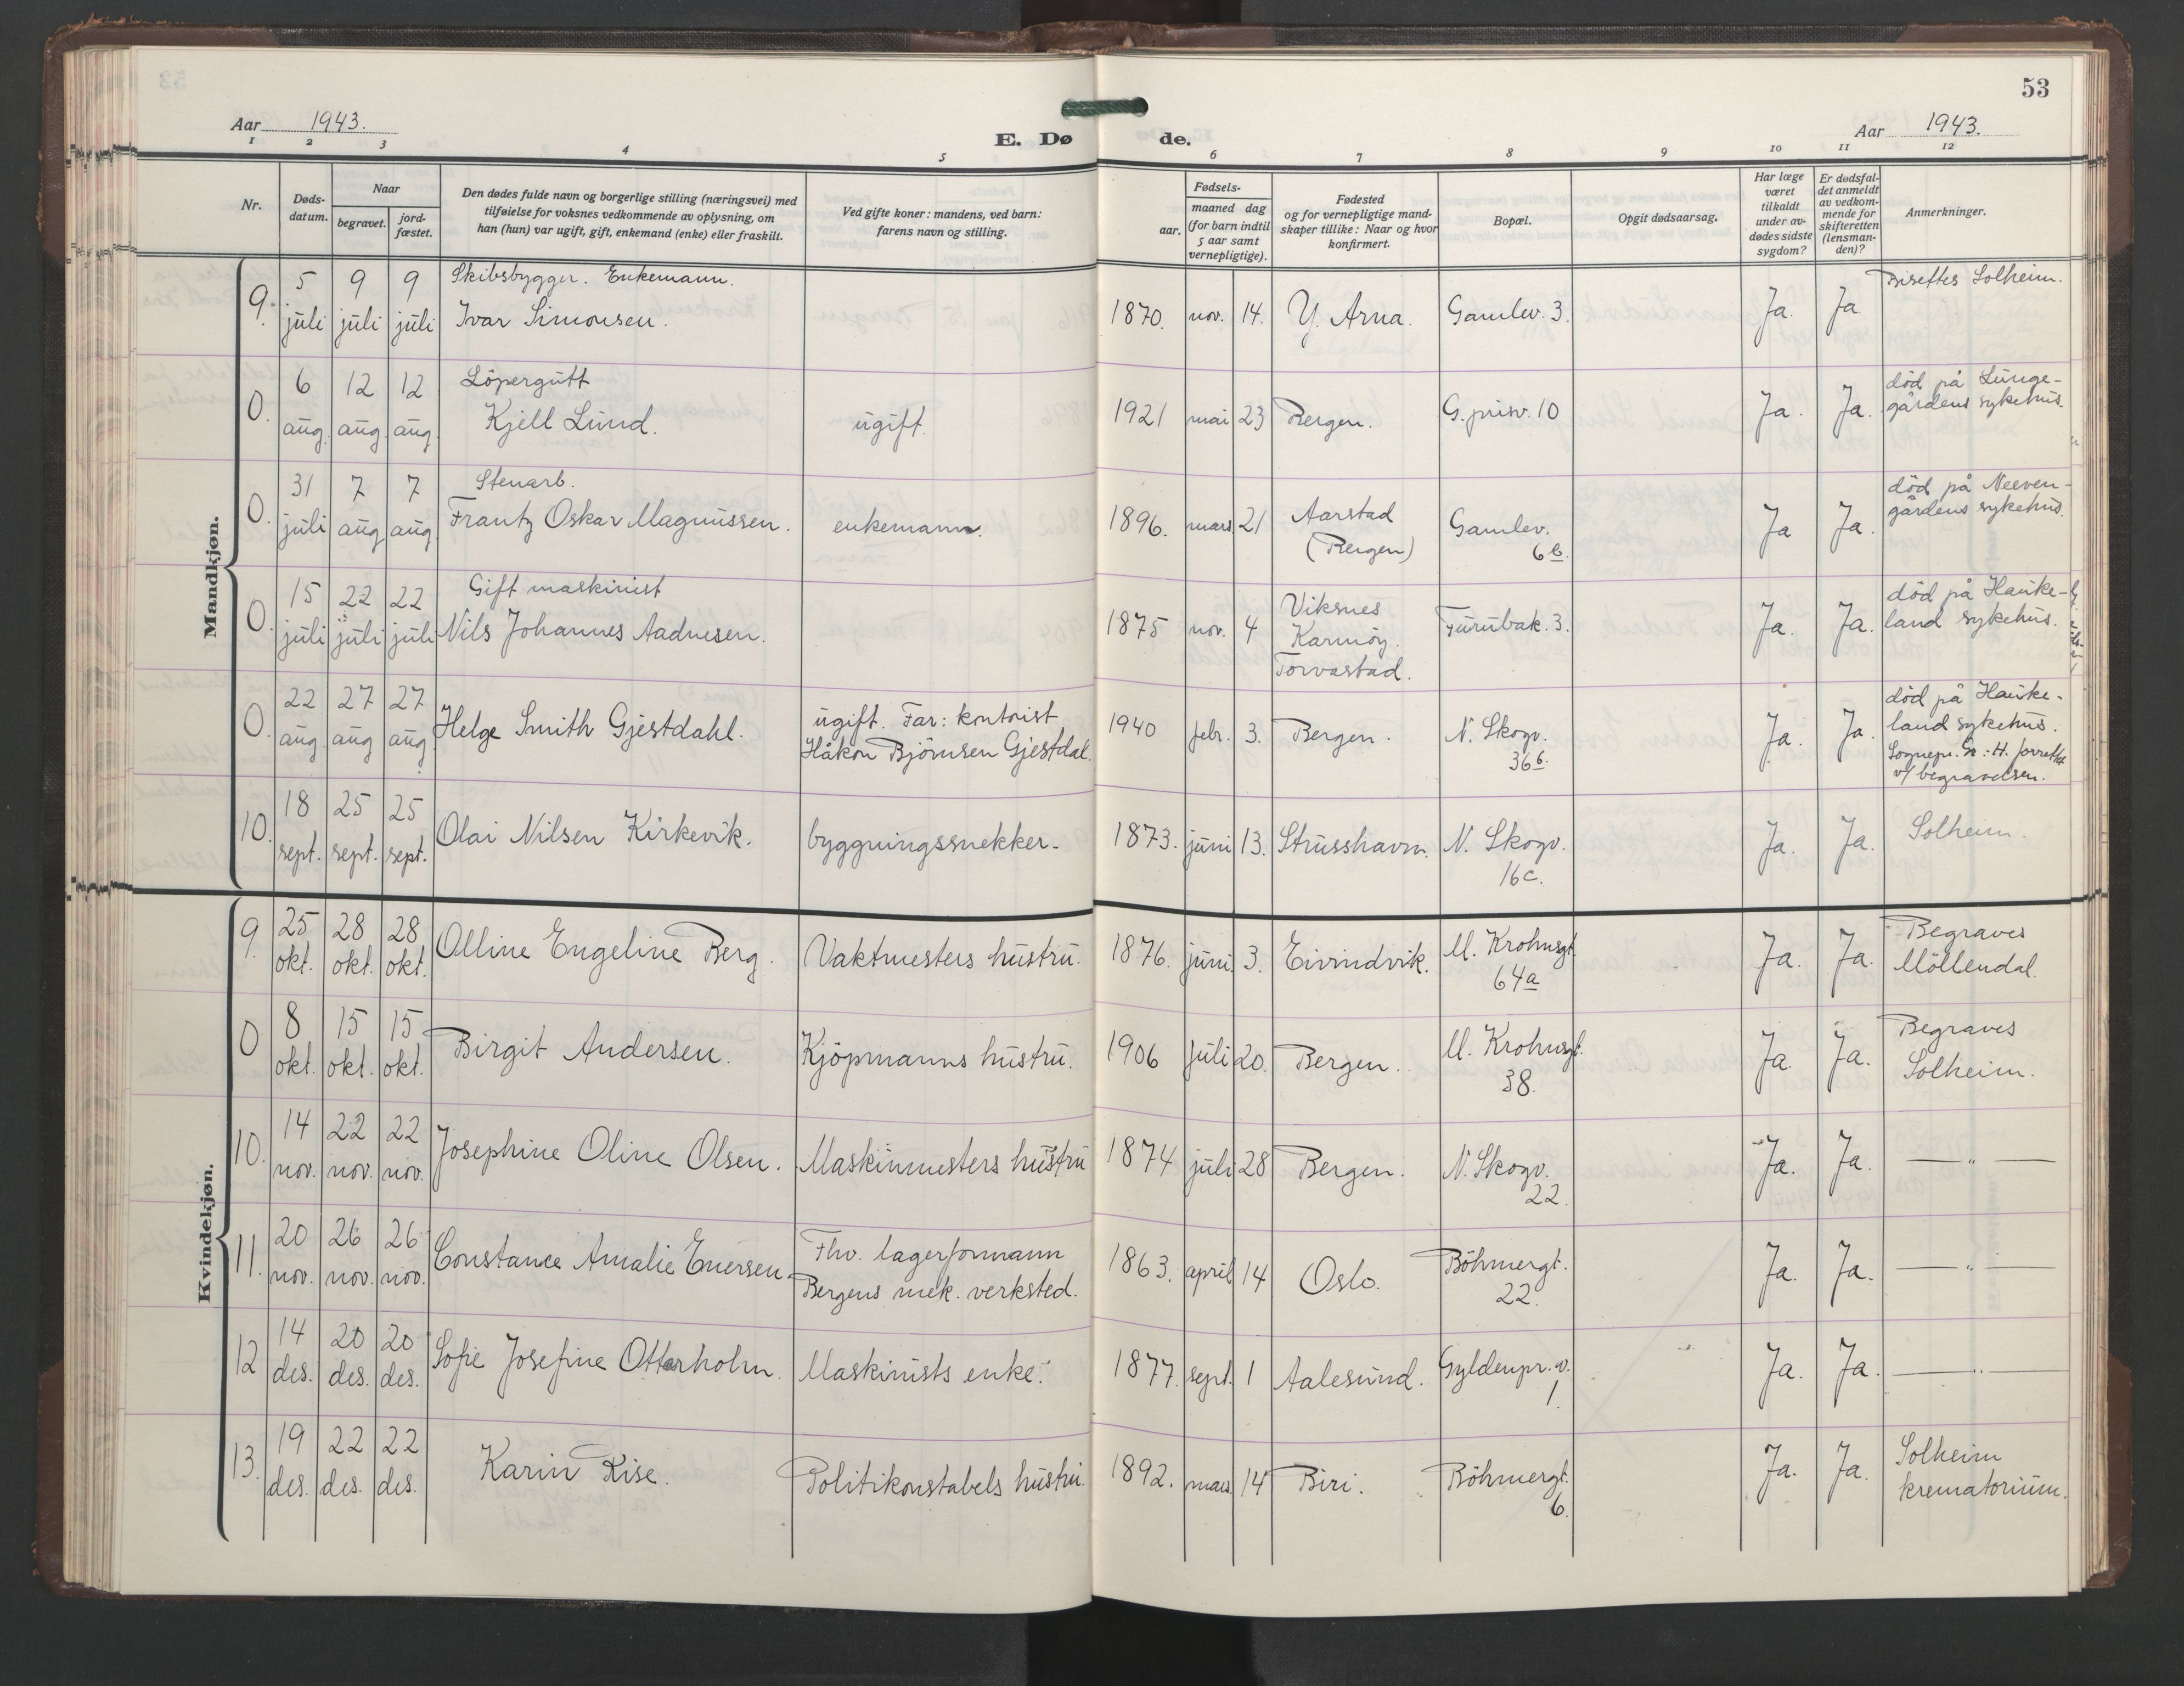 53
Aar 1943.
E. Døde.
Aar 1943.
1 2 3 4 5 6 7 8 9 10 11 12
Nr.
Døds-
datum.
Naar
begravet.
jord-
fæstet.
Den dødes fulde navn og borgerlige stilling (næringsvei) med
tilføielse for voksnes vedkommende av oplysning, om
han (hun) var ugift, gift, enkemand (enke) eller fraskilt.
Ved gifte koner: mandens, ved barn:
farens navn og stilling.
Fødsels-
aar.
maaned dag
(for barn indtil
5 aar samt
vernepligtige).
Fødested
og for vernepligtige mand-
skaper tillike: Naar og hvor
konfirmert.
Bopæl.
Opgit dødsaarsag.
Har læge
været
tilkaldt
under av-
dødes sidste
sygdom?
Er dødsfal-
det anmeldt
av vedkom-
mende for
skifteretten
(lensman-
den)?
Anmerkninger.
Mandkjøn.
9. 5 juli 9 juli 9 juli
Skibsbygger. Enkemann.
Ivar Simonsen.
1870. nov. 14. Y. Arna. Gamlev. 3. Ja. Ja
Bisettes Solheim.
0. 6 aug. 12 aug. 12 aug.
Löpergutt
Kjell Lund.
ugift.
1921 mai 23 Bergen. G. prisv. 10 Ja. Ja.
död på Lunge-
gårdens sykehus.
0. 31 juli 7 aug 7 aug.
Stenarb.
Frantz Oskar Magnussen.
enkemann.
1896. mars 21 Aarstad
(Bergen)
Gamlev.
6b.
Ja Ja.
död på Neeven-
gårdens sykehus.
0. 15 juli 22 juli 22 juli
Gift maskinist
Nils Johannes Aadnesen.
1875 nov. 4 Viksnes
Karmöy.
Torvastad.
Furubak. 3.
Ja. Ja.
död på Hauke-
land sykehus.
0. 22 aug. 27 aug 27 aug.
Helge Smith Gjestdahl.
ugift. Far: kontorist
Håkon Björnsen Gjestdal.
1940 febr. 3. Bergen. N. Skogv.
36b.
Ja. Ja.
död på Hauke-
land sykehus.
v/ begravelsen.
10. 18 sept. 25 sept. 25 sept.
Olai Nilsen Kirkevik.
byggningssnekker.
1873. juni 13. Strusshavn. N. Skogv.
16c.
Ja. Ja.
Solheim.
Kvindekjøn.
9. 25 okt. 28 okt. 28 okt.
Olline Engeline Berg.
Vaktmesters hustru.
1876. juni 3. Eivindvik. M. Krohnsgt.
64a
Ja. Ja.
Begraves
Möllendal.
0 8 okt. 15 okt. 15 okt.
Birgit Andersen.
Kjöpmanns hustru.
1906 juli 20. Bergen. M. Krohnsgt.
38.
Ja. Ja.
Begraves
Solheim.
10. 14 nov. 22 nov. 22 nov.
Josephine Oline Olsen.
Maskinmesters hustru
1874 juli 28 Bergen. N. Skogv.
22.
Ja. Ja.
— " —
11. 20 nov. 26 nov. 26 nov.
Constance Amalie Enersen.
Fhv. lagerformann
Bergens mek. verksted.
1863. april 14 Oslo. Böhmergt.
22.
Ja. Ja.
— " —
12 14 des. 20 des. 20 des.
Sofie Josefine Otterholm.
Maskinists enke.
1877. sept. 1 Aalesund. Gyldenpr. v.
1.
Ja. Ja.
— " —
13. 19 des. 22 des. 22 des.
Karin Kise.
Politikonstabels hustru.
1892. mars 14 Biri. Böhmergt.
6.
Ja. Ja.
Solheim
krematorium.